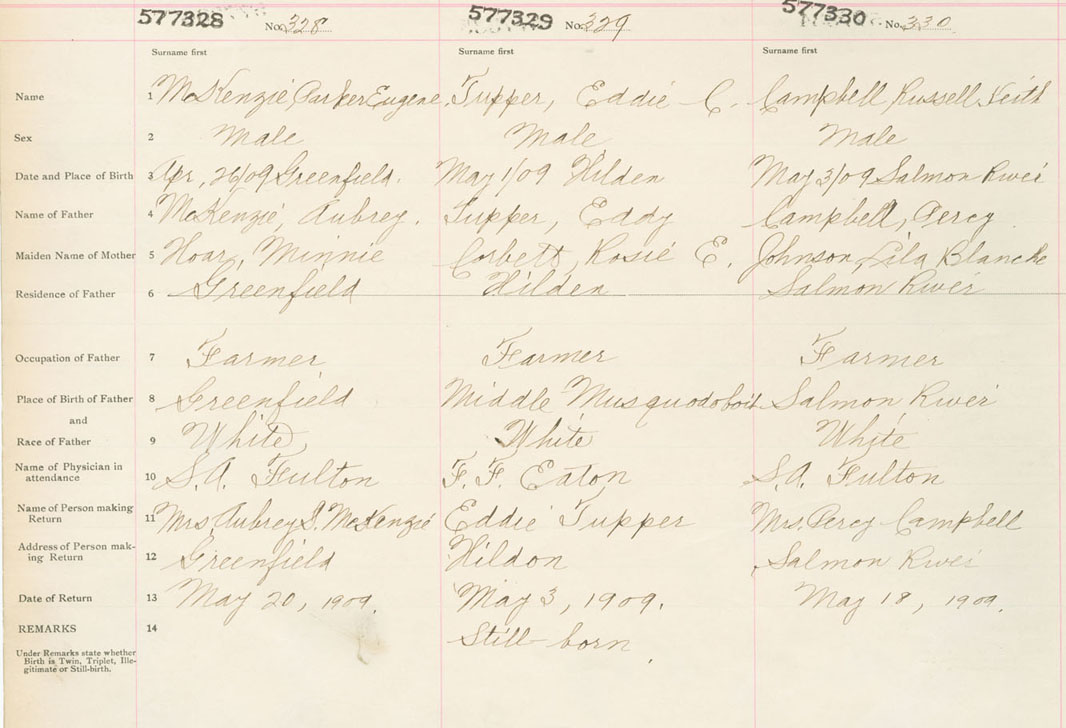 577328 No. 328 577329 No. 329 577330 No. 330
Surname first Surname first Surname first
Name 1 McKenzie Parker Eugene. Tupper, Eddie C. Campbell, Russell Keith
Sex 2 Male Male Male
Date and Place of Birth 3 Apr, 26/09 Greenfield. May 1/09 Hilden May 3/09 Salmon River
Name of Father 4 McKenzie, Aubrey. Tupper, Eddy Campbell, Percy
Maiden Name of Mother 5 Hoar, Minnie Corbett, Rosie E. Johnson, Lila Blanche
Residence of Father 6 Greenfield Hilden Salmon River
Occupation of Father 7 Farmer Farmer Farmer
Place of Birth of Father 8 Greenfield Middle Musquodoboit Salmon River
and
Race of Father 9 White White White
Name of Physician in
attendance 10 S.A. Fulton F.F. Eaton S.A. Fulton
Name of Person making
Return 11 Mrs. Aubrey J. McKenzie Eddie Tupper Mrs. Percy Campbell
Address of Person mak-
ing Return 12 Greenfield Hildon Salmon River
Date of Return 13 May 20, 1909. May 3, 1909. May 18, 1909.
REMARKS 14 Still-born.
Under Remarks state whether
Birth is Twin, Triplet, Ille-
gitimate or Still-birth.